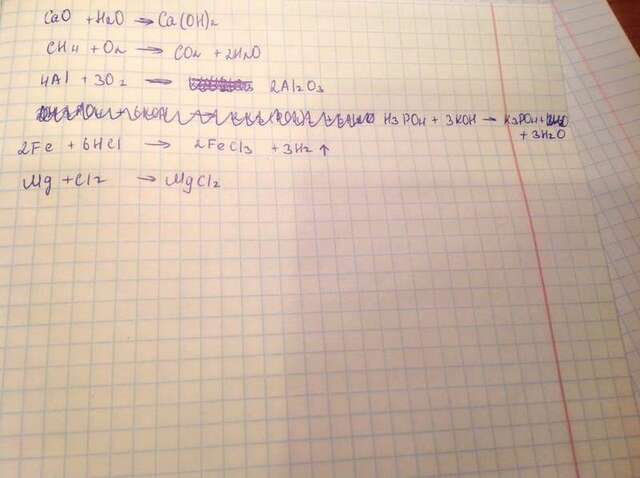 CaO + H2O → Ca(OH)2
CH4 + O2 → CO2 + 2H2O
4Al + 3O2 → 2Al2O3
H3PO4 + 3KOH → K3PO4 + 3H2O
2Fe + 6HCl → 2FeCl3 + 3H2 ↑
Mg + Cl2 → MgCl2